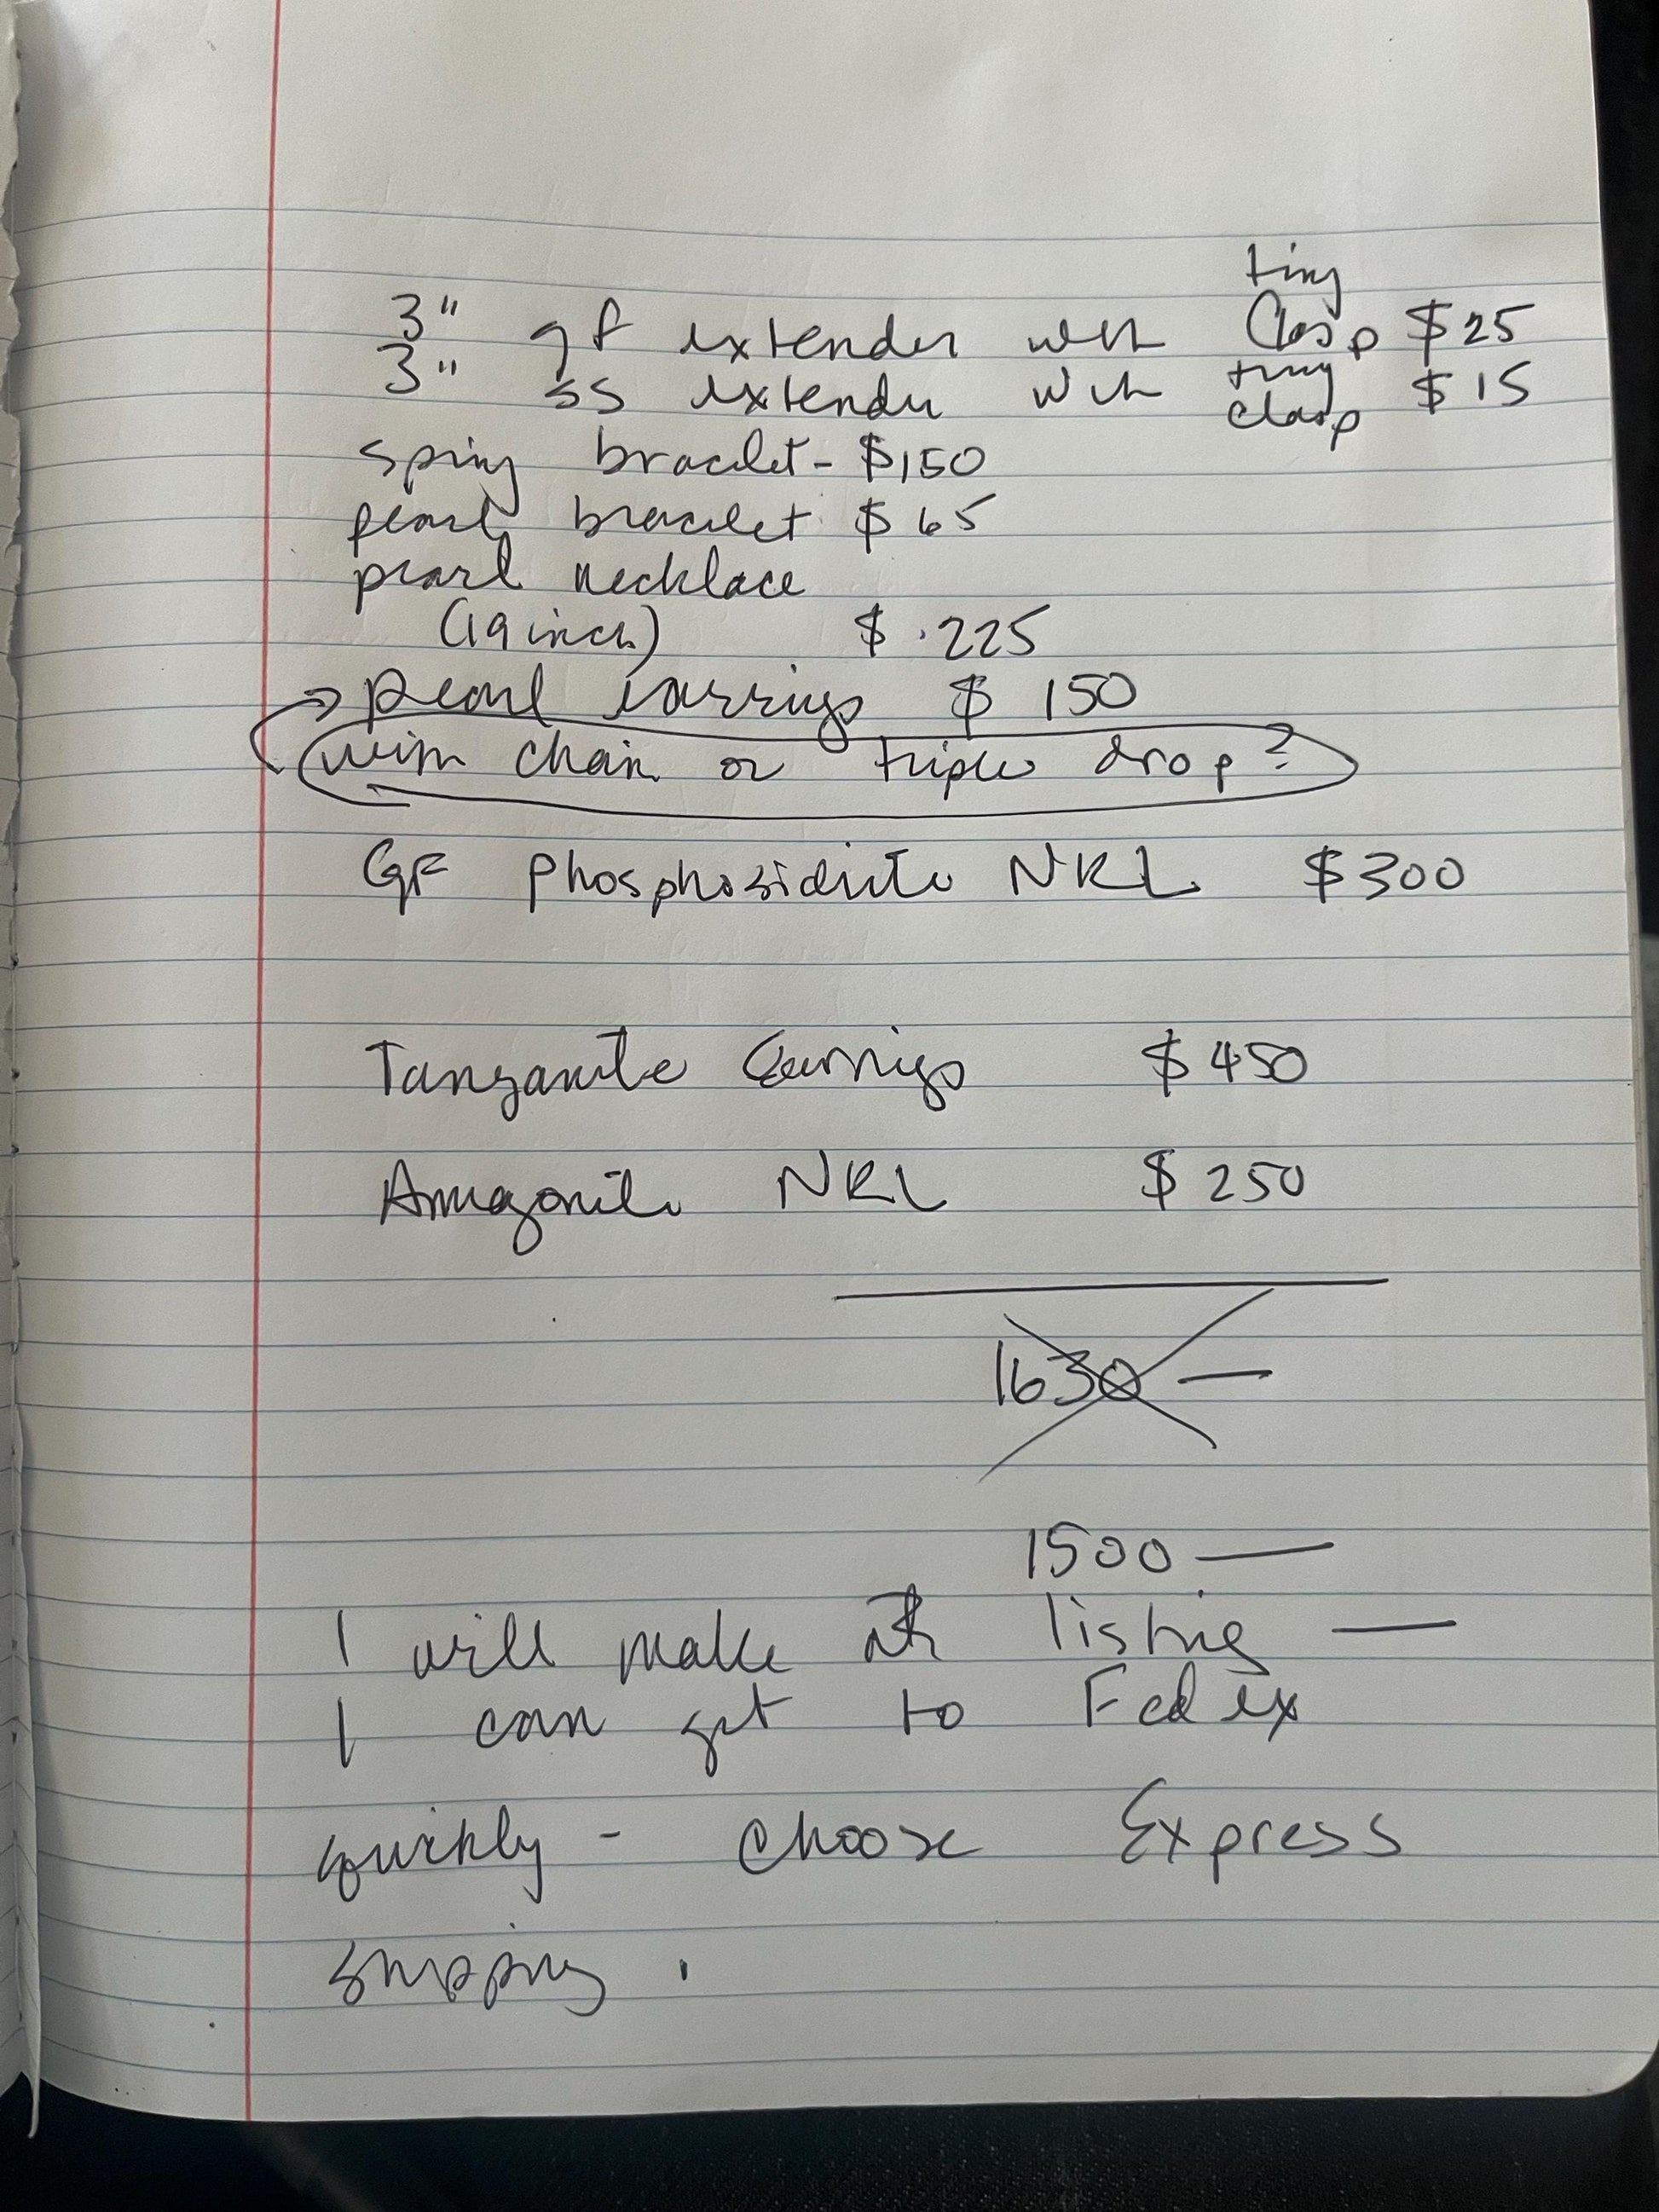 3" gf extender with tiny Clasp $25
3" ss extender with tiny clasp $15
spiny bracelet - $150
pearl bracelet $65
pearl necklace
(19 inch) $225
pearl earrings $150
with chain or triple drop?
GF Phosphosiderite NKL $300
Tanzanite Earrings $450
Amazonite NKL $250
1630 —
1500 —
I will make listing —
I can get to Fedex
quickly - choose Express
shipping.